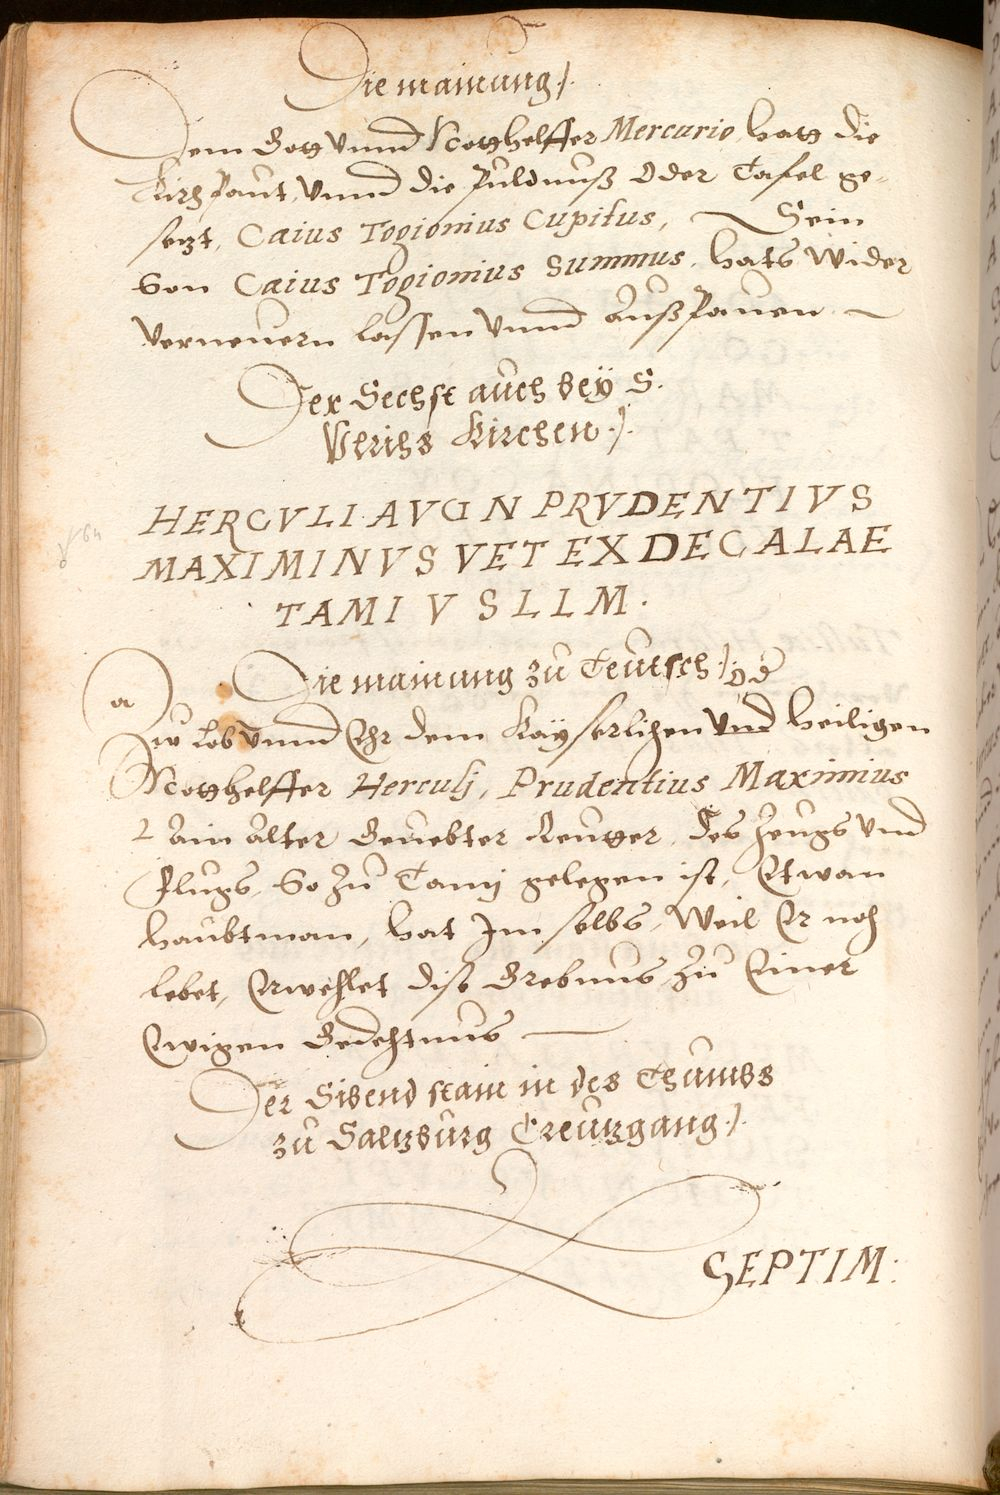 Die mainung /.
Dem Gott vnnd Notthelffer Mercurio hatt die
Kirch paut, vnnd die Puldnuß oder Tafel ge-
setzt, Caius Togionius Cupitus, Sein
Son Caius Togionius Summus, hats wider
vernewern lassen vnnd außpauen
Der Sechst auch bey S.
Vlrichs Kirchen /.
HERCVLI AVG N PRVDENTIVS
MAXIMINVS VET EX DEC ALAE
TAMI V S L L M .
Die mainung zu Teutsch /.
a
Zw Lob vnnd Ehr dem Kayserlichen vnd heiligen
Notthelffer Herculj, Prudentius Maximius
Ain Alter Geuebter des Zeugs vnd
Flugs, So zu Tamj gelegen ist, Etwan
haubtman, hat Im selbs, Weil Er noch
lebet, Erwehlet dise Grebnus zu Einer
Ewigen Gedechtnus
Der Sibend stain in des Thumbs
zu Saltzburg Creutzgang /.
SEPTIM: